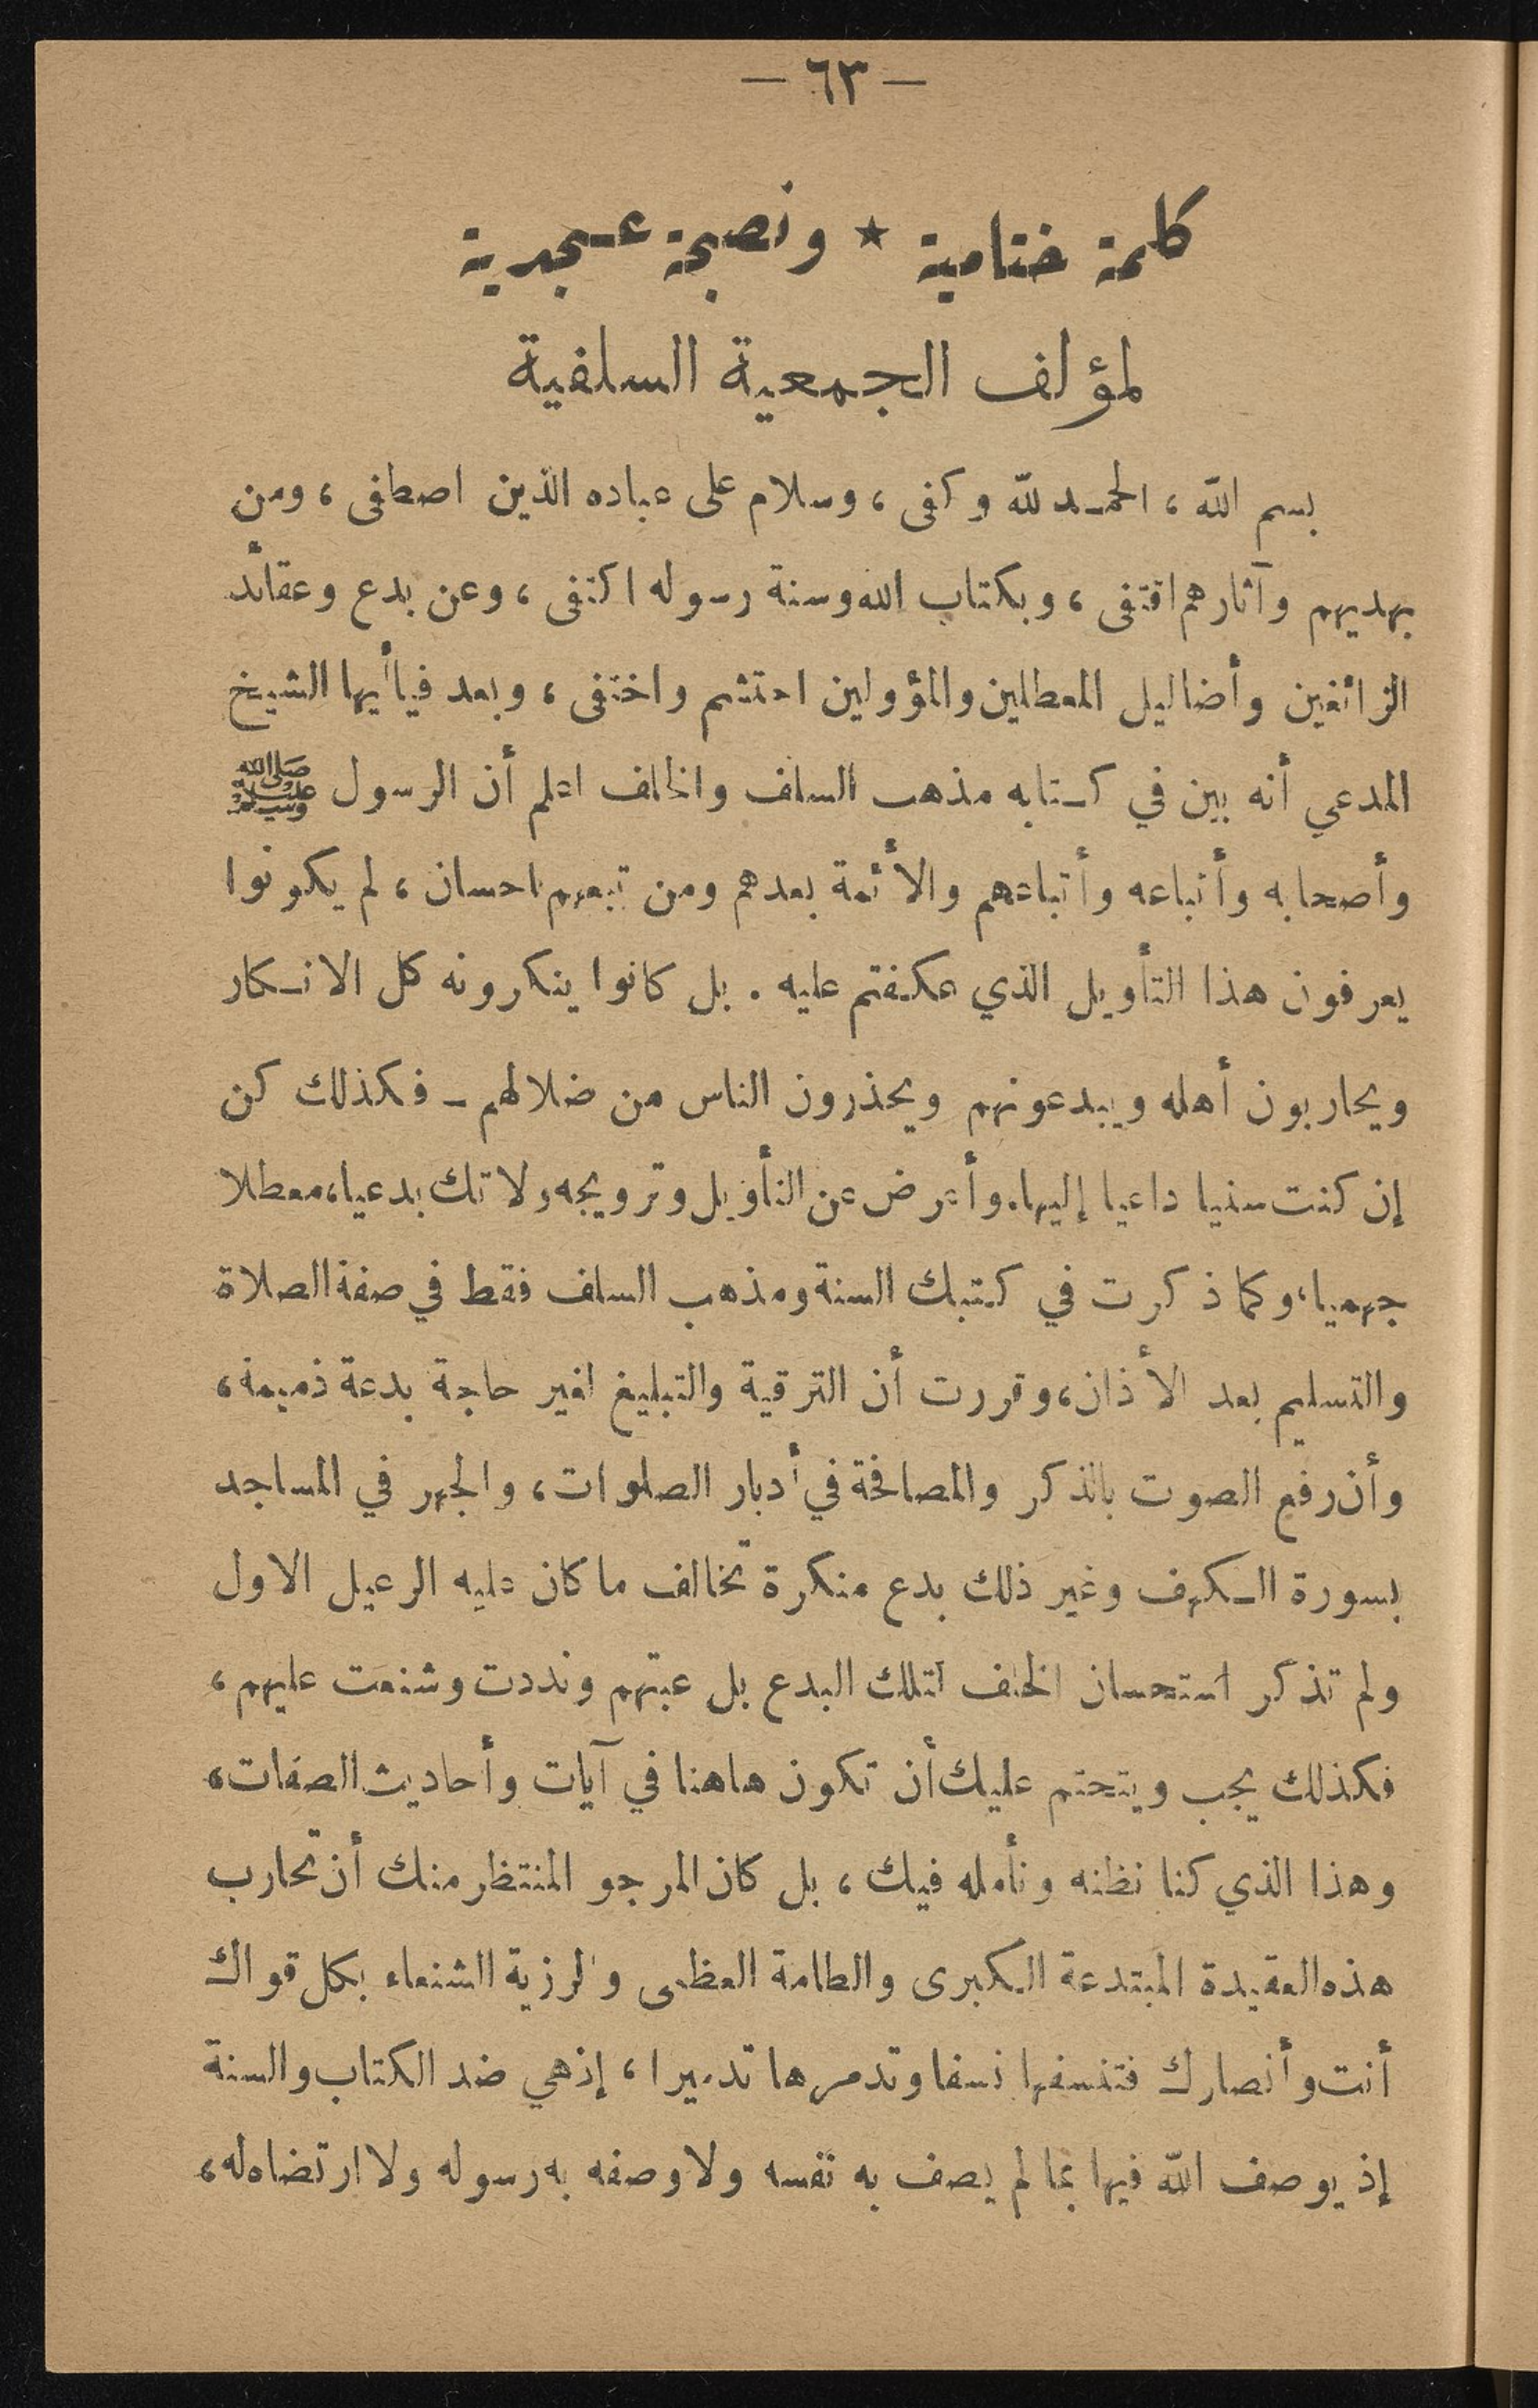 — ٦٣ —
كلمة ختامية ★ ونصيحة عسجدية
لمؤلف الجمعية السلفية
بسم الله ، الحمد لله وكفى ، وسلام على عباده الذين اصطفى ، ومن
بهديهم وآثارهم اقتفى ، وبكتاب الله وسنة رسوله اكتفى ، وعن بدع وعقائد
الزائغين وأضاليل المعطلين والمؤولين احتشم واختفى ، وبعد فياأيها الشيخ
المدعي أنه بين في كتابه مذهب السلف والخلف اعلم أن الرسول ﷺ
وأصحابه وأتباعه وأتباعهم والأئمة بعدهم ومن تبعهم باحسان ، لم يكونوا
يعرفون هذا التأويل الذي عكفتم عليه . بل كانوا ينكرونه كل الانكار
ويحاربون أهله ويبدعونهم ويحذرون الناس من ضلالهم ـ فكذلك كن
إن كنت سنيا داعيا إليها. وأعرض عن التأويل وترويجه ولا تك بدعيا، معطلا
جهميا، وكما ذكرت في كتبك السنة ومذهب السلف فقط في صفة الصلاة
والتسليم بعد الأذان، وقررت أن الترقية والتبليغ لغير حاجة بدعة ذميمة،
وأن رفع الصوت بالذكر والمصافحة في أدبار الصلوات، والجهر في المساجد
بسورة الكهف وغير ذلك بدع منكرة تخالف ما كان عليه الرعيل الاول
ولم تذكر استحسان الخلف لتلك البدع بل عبتهم ونددت وشنعت عليهم ،
فكذلك يجب ويتحتم عليك أن تكون هاهنا في آيات وأحاديث الصفات،
وهذا الذي كنا نظنه ونأمله فيك ، بل كان المرجو المنتظر منك أن تحارب
هذه العقيدة المبتدعة الكبرى والطامة العظمى والرزية الشنعاء بكل قواك
أنت وأنصارك فتنسفها نسفا وتدمرها تدميرا ، إذ هي ضد الكتاب والسنة
إذ يوصف الله فيها بما لم يصف به نفسه ولا وصفه به رسوله ولا ارتضاه له ،